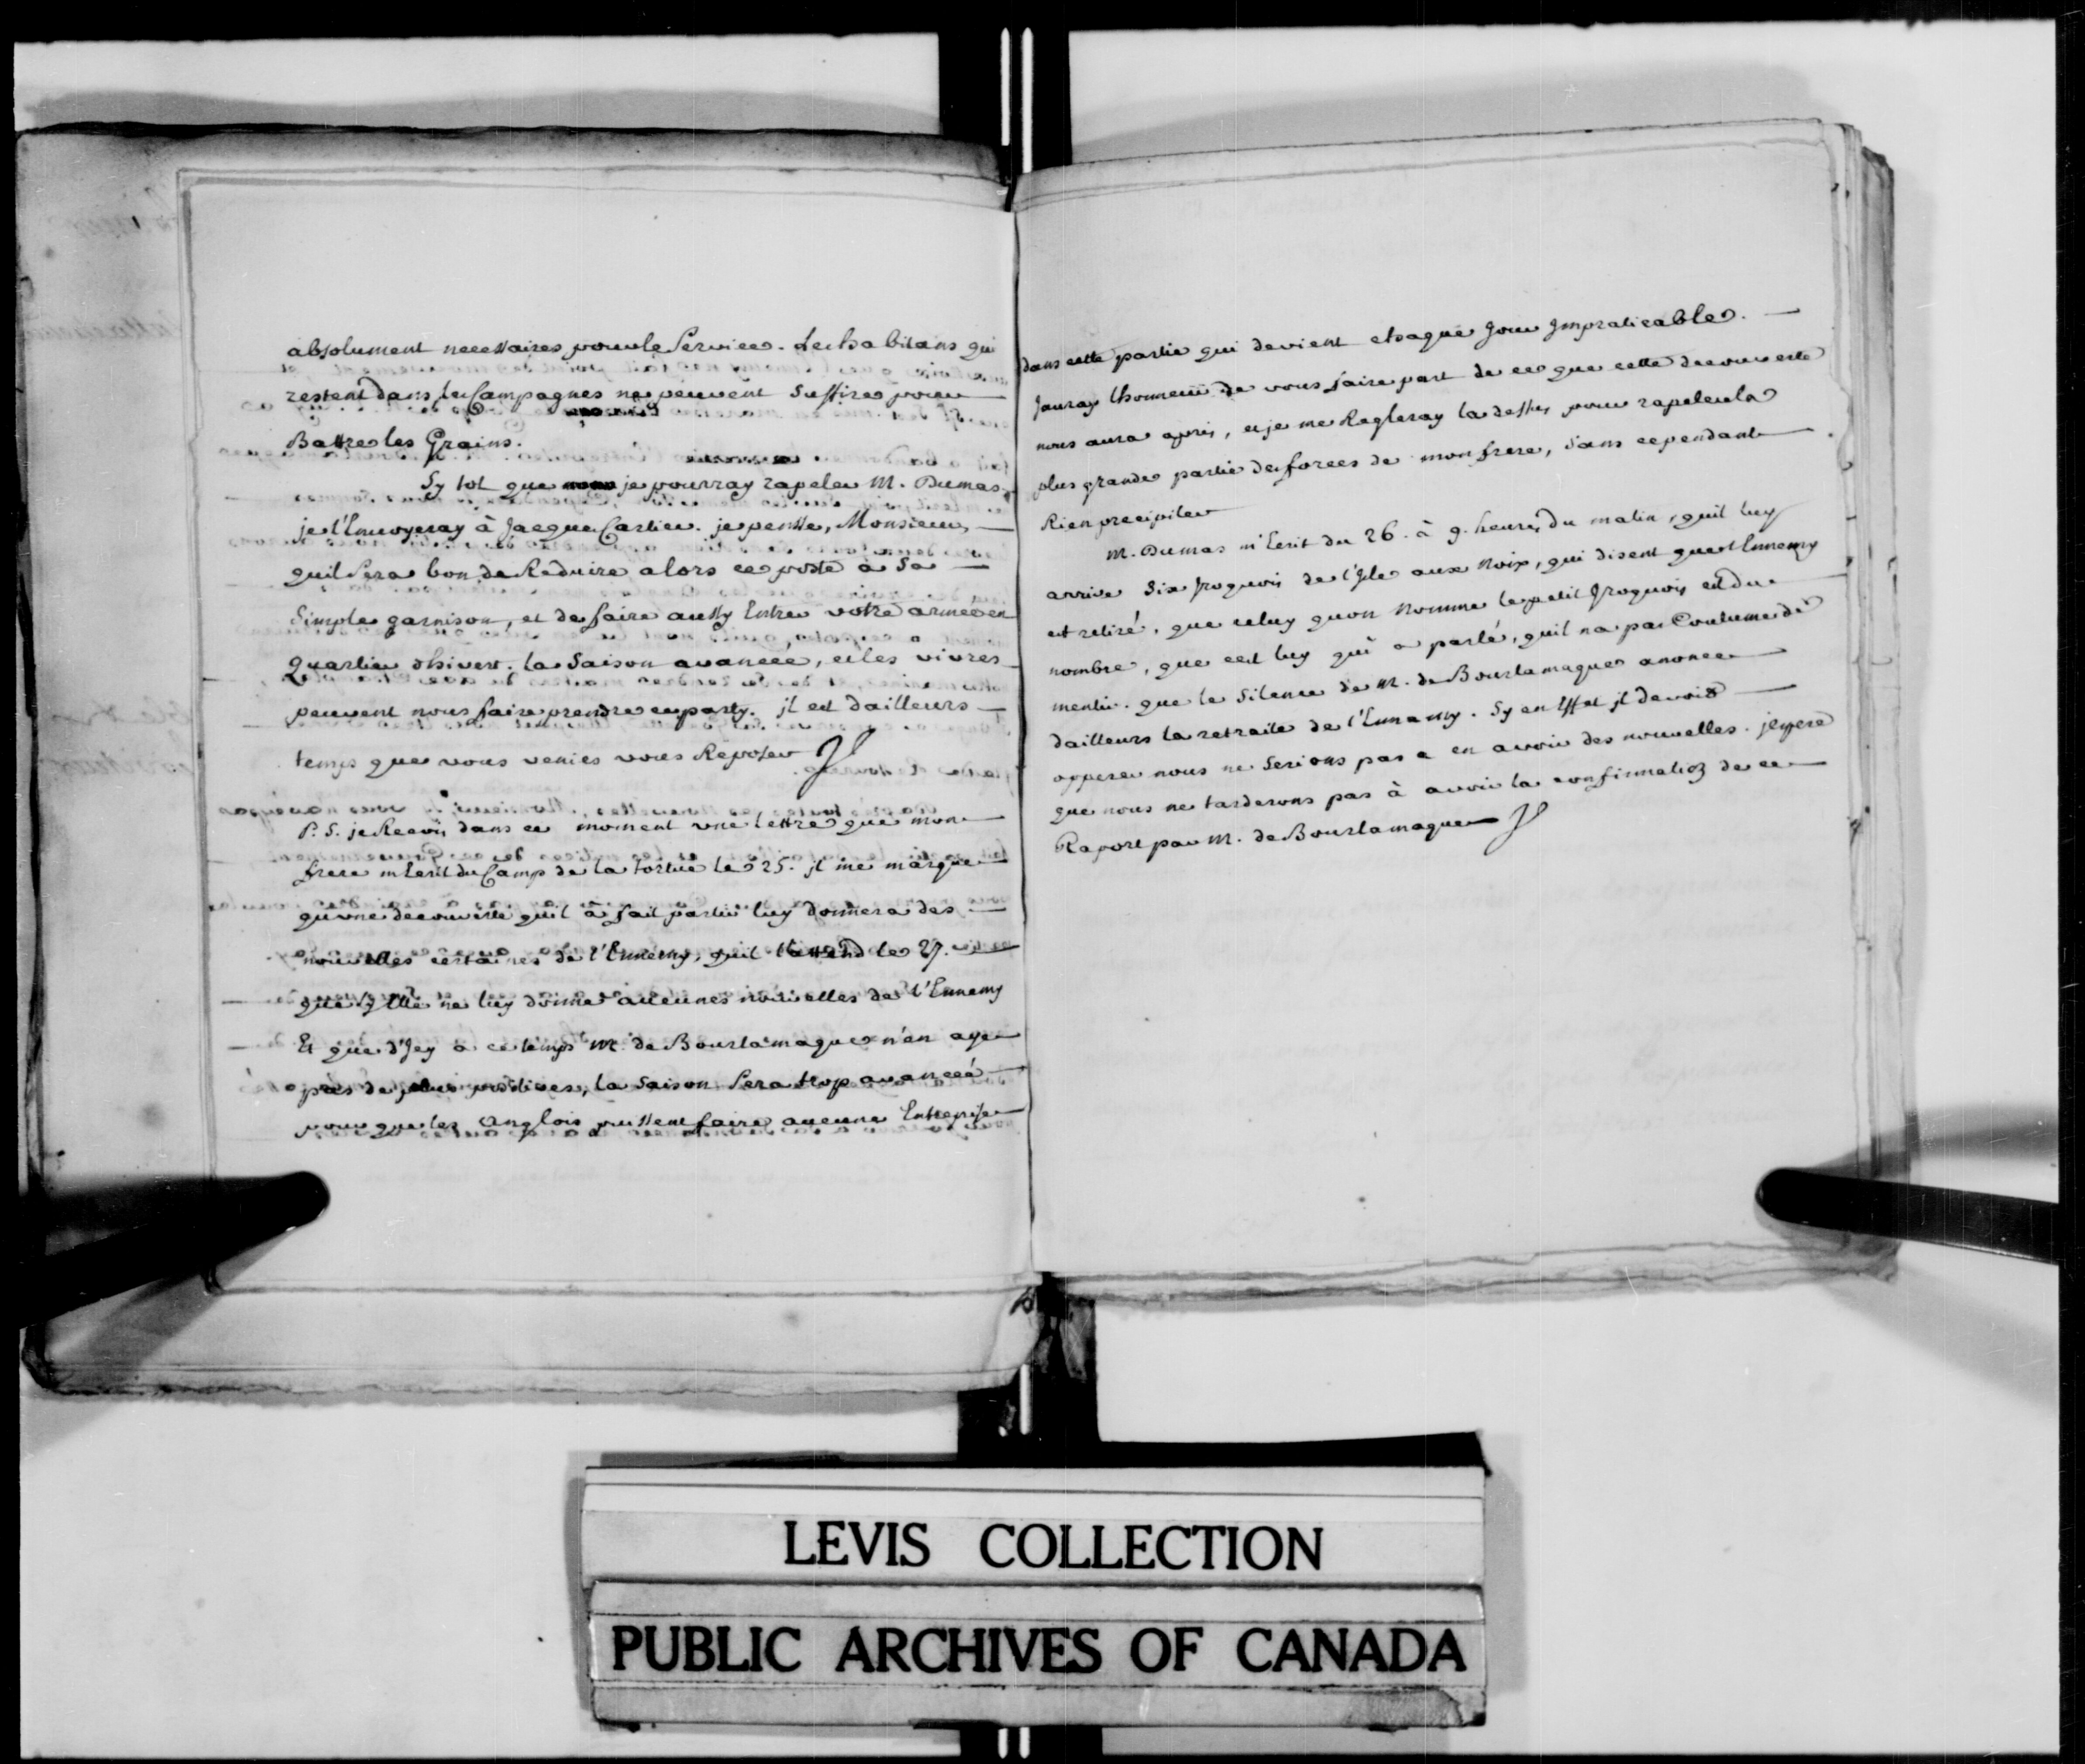 absolument necessaires pour le Service. Les habitans qui
restent dans les Campagnes ne peuvent Suffire pour
Battre les Grains.
Sy tot que je pourray rapeler M. Dumas
je l'Envoyeray à Jacque Cartier. je pense, Monsieur,
quil Sera bon de Reduire alors ce poste à Sa
Simple garnison, et de faire aussy Entrer votre armée en
quartier d'hivert. la Saison avancée, et les vivres
peuvent nous faire prendre ce party. jl est dailleurs
temps que vous veniés vous Reposer
P. S. je Recois dans ce moment une lettre que mon
frere m'Ecrit du Camp de la tortue le 25. jl me marque
qu'une decouverte quil à fait partir luy donnera des
nouvelles certaines de l'Ennemy, quil l'attend le 27.
que sy Elle ne luy donne aucunes nouvelles de l'Ennemy
Et que d'Jcy a ce temps M. de Bourlamaque n'en aye
pas de plus positives, la Saison Sera trop avancée
pour que les Anglois puissent faire aucune Entreprise
dans cette partie qui devient chaque Jour Jmpraticable.
Jauray lhonneur de vous faire part de ce que cette decouverte
nous aura apris, et je me Regleray la dessus pour rapeler la
plus grande partie des forces de mon frere, Sans cependant
Rien precipiter
M. Dumas m'Ecrit du 26. à 9. heures du matin, quil luy
arrive Six Jroquois de l'Jsle aux Noix, qui disent que l'Ennemy
est retiré, que celuy quon Nomme le petit Jroquois est du
nombre, que cest luy qui a parlé, quil na pas Coutume de
mentir. que le Silence de M. de Bourlamaque anonce
dailleurs la retraite de l'Ennemy. Sy en Effet jl devoit
opperer nous ne Serions pas a en avoir des nouvelles. jespere
que nous ne tarderons pas à avoir la confirmation de ce
Raport par M. de Bourlamaque
LEVIS COLLECTION
PUBLIC ARCHIVES OF CANADA